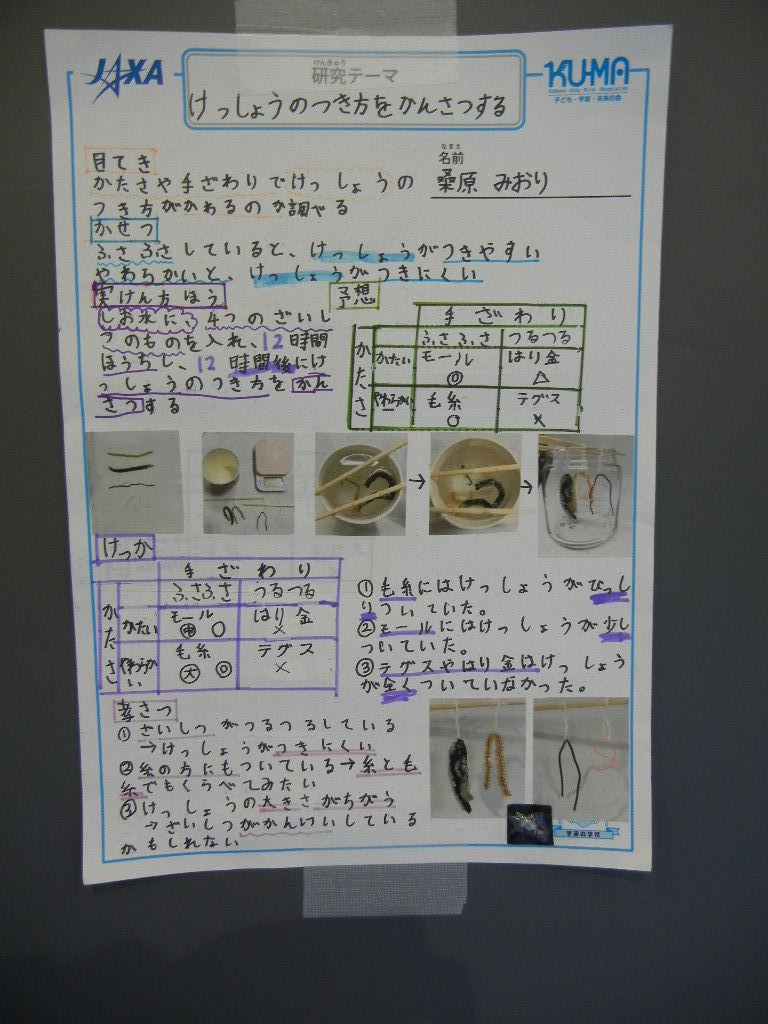 JAXA
けんきゅう
研究テーマ
けっしょうのつき方をかんさつする
KU-MA
子ども・宇宙・未来の会
目てき
かたさや手ざわりでけっしょうの
つき方がかわるのか調べる
なまえ
名前
桑原 みおり
かせつ
ふさふさしていると、けっしょうがつきやすい
やわらかいと、けっしょうがつきにくい
実けん方ほう
しお水に、4つのざいし
つのものを入れ、12時間
ほうちし、12時間後にけ
っしょうのつき方をかん
さつする
予想
手ざわり
ふさふさ つるつる
かたさ
かたい モール ◎ はり金 △
やわらかい 毛糸 ○ テグス ×
→ →
けっか
手ざわり
ふさふさ つるつる
かたさ
かたい モール ㊥ ○ はり金 ×
やわらかい 毛糸 ㊛ ◎ テグス ×
①毛糸にはけっしょうがびっし
りついていた。
②モールにはけっしょうが少し
ついていた。
③テグスやはり金はけっしょう
が全くついていなかった。
考さつ
①ざいしつがつるつるしている
→けっしょうがつきにくい
②糸の方にもついている→糸と毛
糸でもくらべてみたい
③けっしょうの大きさがちがう
→ざいしつがかんけいしている
かもしれない
宇宙の学校